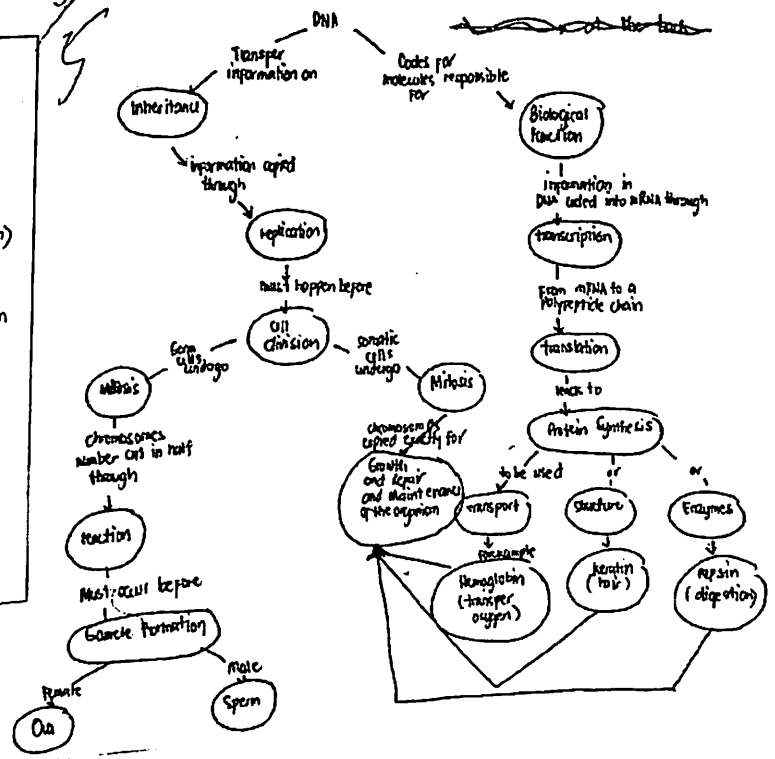 DNA
Transfer
information on
Codes for
molecules responsible
for
Inheritance
Biological
function
information copied
through
information in
DNA coded into mRNA through
replication
transcription
must happen before
From mRNA to a
Polypeptide chain
cell
division
translation
Germ
cells
undergo
somatic
cells
undergo
Meiosis
Mitosis
lead to
Protein Synthesis
chromosomes
number cut in half
through
chromosomes
copied exactly for
Growth
and repair
and maintenance
of the organism
to be used
or
or
transport
structure
Enzymes
for example
Hemoglobin
(transfer
oxygen)
keratin
(hair)
Pepsin
(digestion)
Must occur before
Gamete Formation
Female
Male
Ova
Sperm